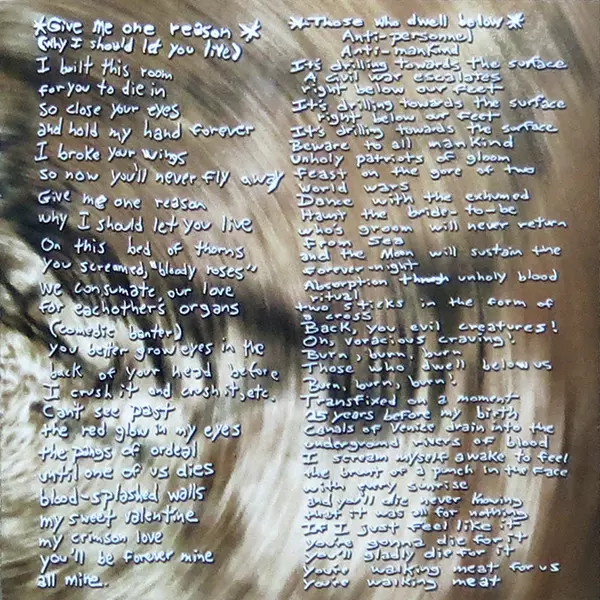 *Give me one reason*
(why I should let you live)
I built this room
for you to die in
so close your eyes
and hold my hand forever
I broke your wings
so now you'll never fly away
Give me one reason
why I should let you live
On this bed of thorns
you screamed, "bloody roses"
we consumate our love
for eachother's organs
(comedic banter)
you better grow eyes in the
back of your head before
I crush it and crush it, etc.
Can't see past
the red glow in my eyes
the pangs of ordeal
until one of us dies
blood-splashed walls
my sweet valentine
my crimson love
you'll be forever mine
all mine.
*Those who dwell below*
Anti-personnel
Anti-mankind
It's drilling towards the surface
A civil war escalates
right below our feet
It's drilling towards the surface
right below our feet
It's drilling towards the surface
Beware to all mankind
Unholy patriots of gloom
feast on the gore of two
world wars
Dance with the exhumed
Haunt the bride-to-be
who's groom will never return
from sea
and the Moon will sustain the
forever-night
Absorption through unholy blood
ritual
two sticks in the form of
a cross
Back, you evil creatures!
Oh, voracious craving!
Burn, burn, burn
Those who dwell below us
Burn, burn, burn!
Transfixed on a moment
25 years before my birth
Canals of Venice drain into the
underground rivers of blood
I scream myself awake to feel
the brunt of a punch in the face
with every sunrise
and you'll die never knowing
that it was all for nothing
If I just feel like it
you're gonna die for it
You'll gladly die for it
You're walking meat for us
You're walking meat